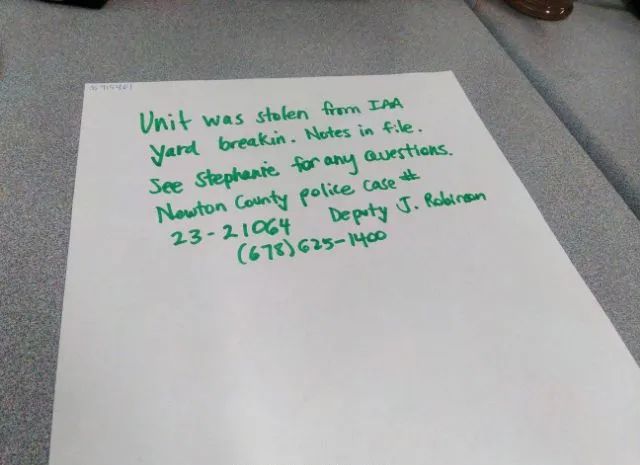 Unit was stolen from IAA
yard breakin. Notes in file.
See Stephanie for any questions.
Newton County police case #
23-21064 Deputy J. Robinson
(678)625-1400